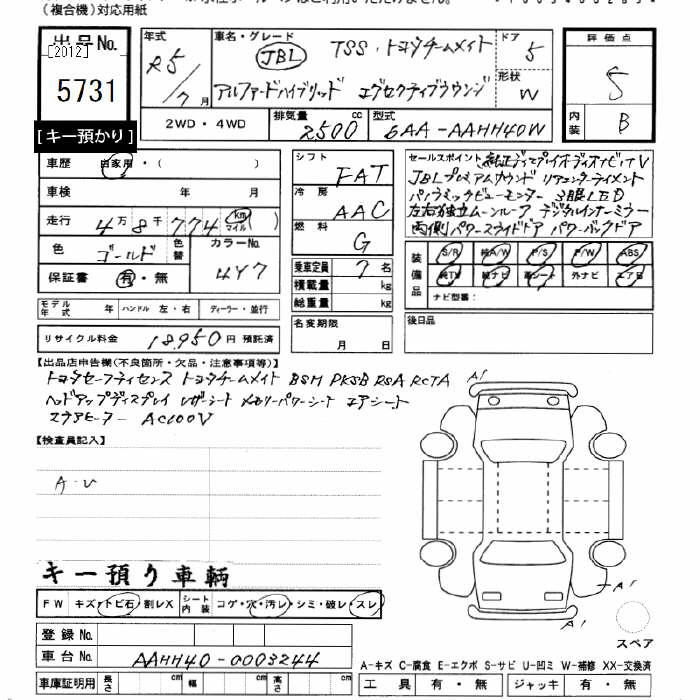 (複合機)対応用紙
出品No.
[2012]
5731
[キー預かり]
年式
R5/7月
車名・グレード
JBL TSS・トヨタチームメイト
アルファードハイブリッド エグゼクティブラウンジ
ドア 5
形状 W
評価点
5
内装 B
2WD・4WD
排気量 2500 cc
型式 6AA-AAHH40W
車歴 自家用・( )
車検 年 月
走行 4万8千774 km マイル
色 ゴールド 色替
カラーNo. 4Y7
保証書 有・無
モデル年式 年 ハンドル 左・右 ディーラー・並行
リサイクル料金 18,950円 預託済
シフト FAT
冷房 AAC
燃料 G
乗車定員 7名
積載量 kg
総重量 kg
名変期限
月 日
セールスポイント 純正ディスプレイオーディオナビTV
JBLプレミアムサウンド リアエンターテイメント
パノラミックビューモニター 3眼LED
左右独立ムーンルーフ デジタルインナーミラー
両側パワースライドドア パワーバックドア
装備品
S/R 純A/W P/S P/W ABS
純TV 純ナビ 革シート 外ナビ エアB
ナビ型番:
後日品
【出品店申告欄(不良箇所・欠品・注意事項等)】
トヨタセーフティセンス トヨタチームメイト BSM PKSB RSA RCTA
ヘッドアップディスプレイ レザーシート メモリーパワーシート エアシート
シートヒーター AC100V
【検査員記入】
A・U
キー預り車輌
FW キズ・トビ石・割レX シート内装 コゲ・穴・汚レ・シミ・破レ・スレ
登録No.
車台No. AAHH40-0003244
車庫証明用 長さ cm 幅 cm 高さ cm
A1
A1
A1
スペア
A-キズ C-腐食 E-エクボ S-サビ U-凹ミ W-補修 XX-交換済
工具 有・無 ジャッキ 有・無